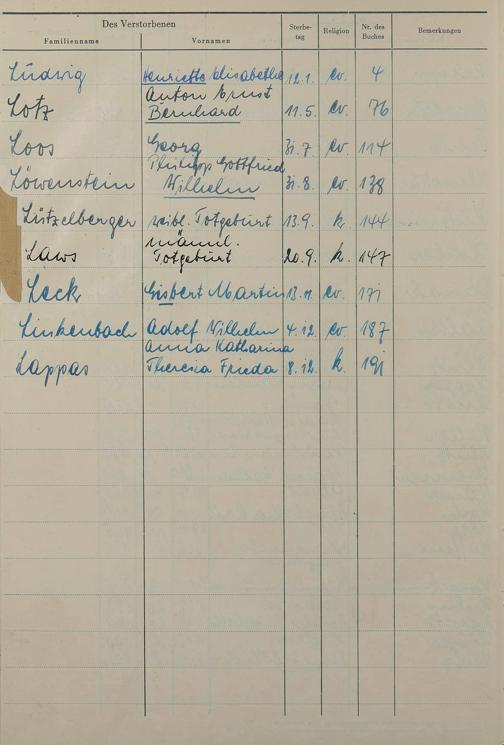 Des Verstorbenen
Familienname Vornamen Sterbe-tag Religion Nr. des Buches Bemerkungen
Lüdwig Henriette Elisabethe 12.1. ev. 4
Anton Ernst
Lotz Bernhard 11.5. ev. 76
Loos Georg 31.7. ev. 114
Philipp Gottfried
Löwenstein Wilhelm 31.8. ev. 138
Lützelberger weibl. Totgebürt 13.9. k. 144
männl.
Laws Totgebürt 20.9. k. 147
Leck Gisbert Martin 13.11. ev. 171
Linkenbach Adolf Wilhelm 4.12. ev. 187
Anna Katharina
Lappas Theresia Frieda 8.12. k. 191